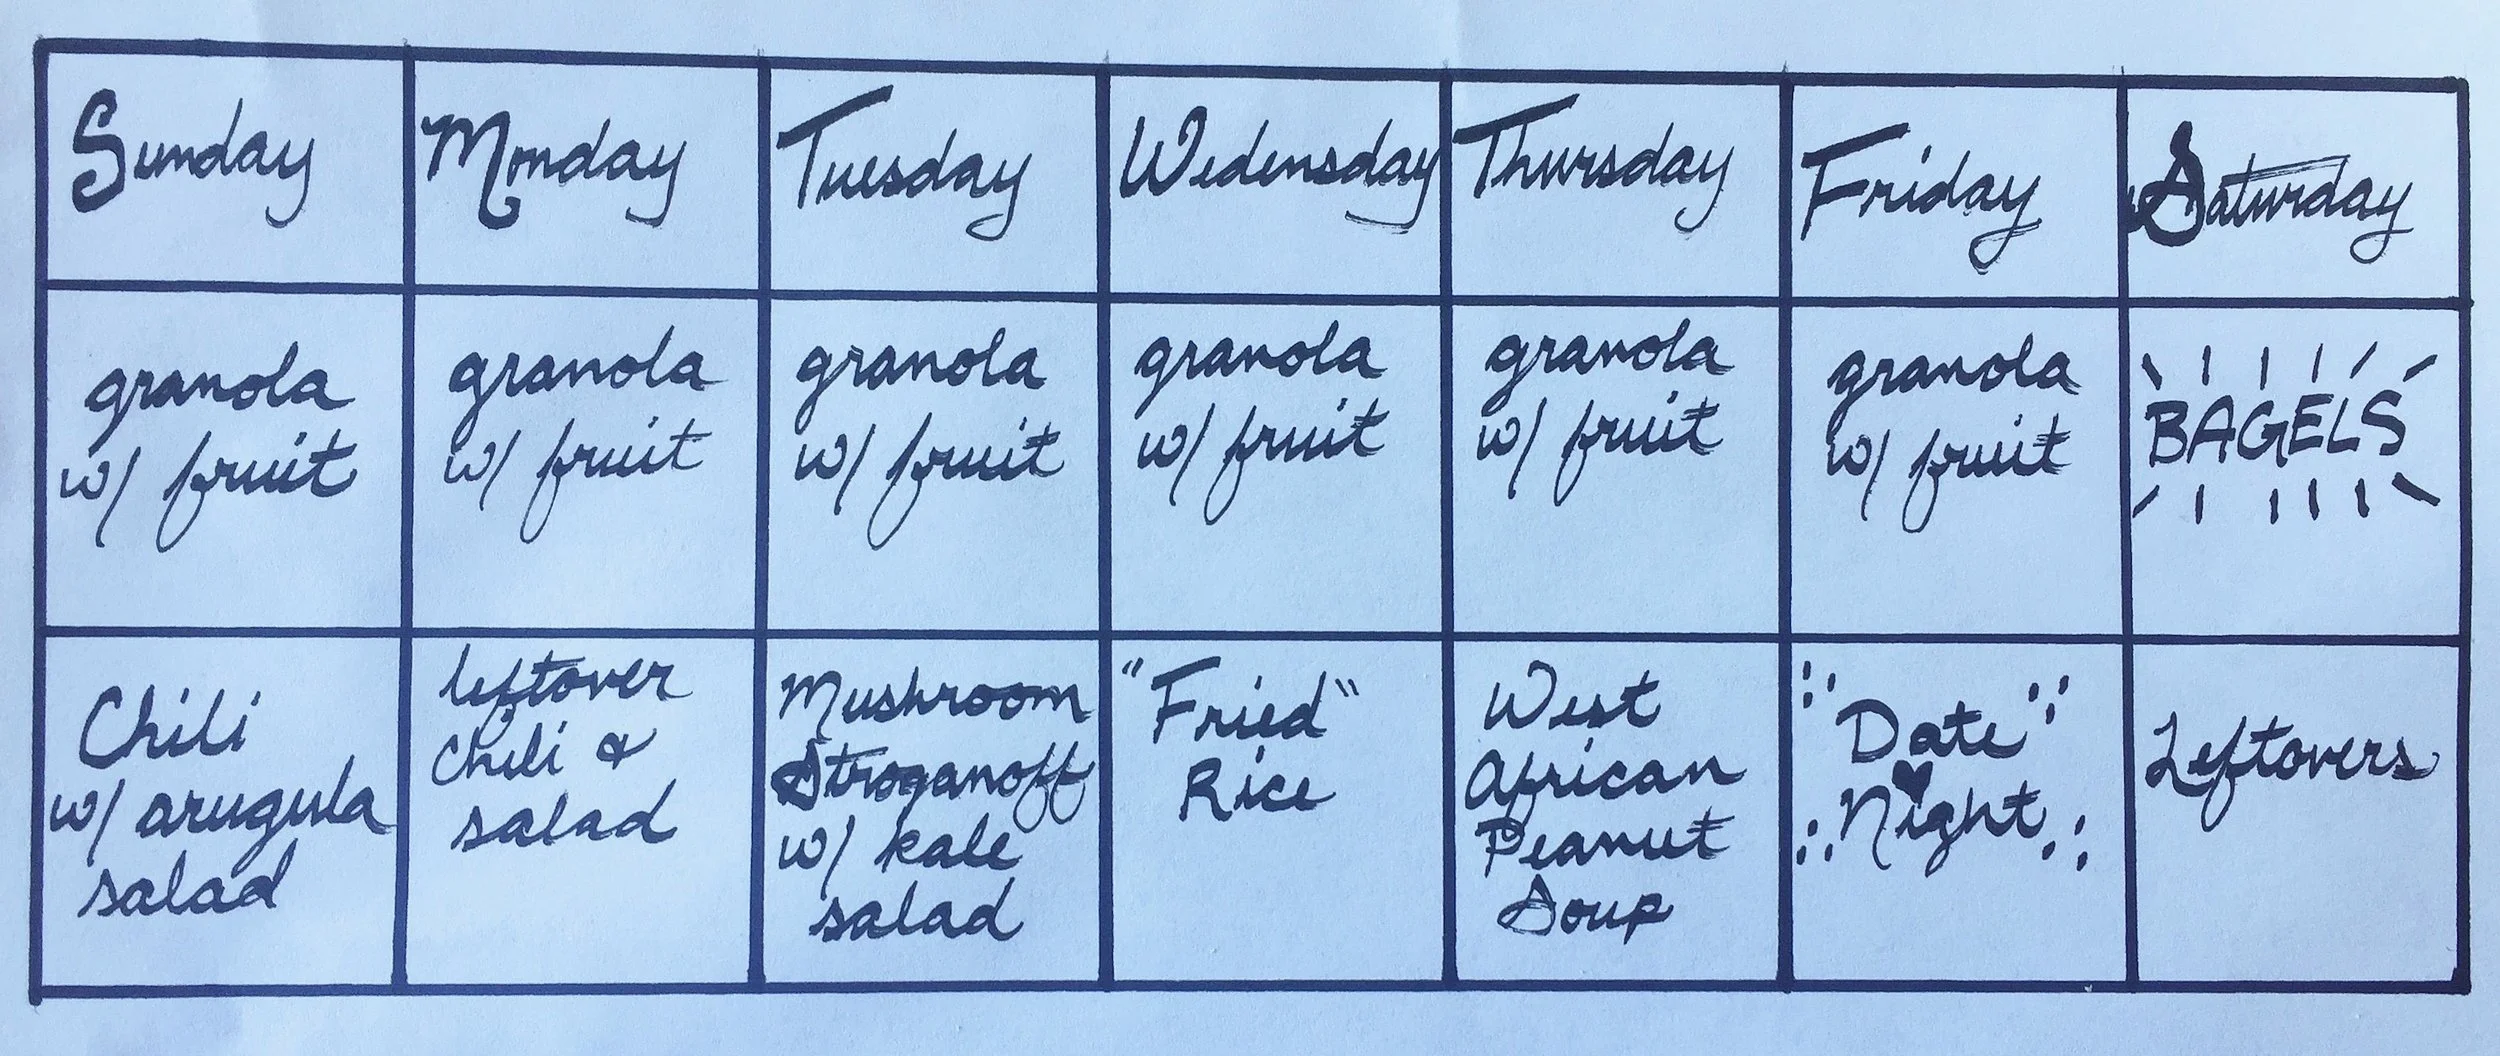 Sunday
Monday
Tuesday
Wedensday
Thursday
Friday
Saturday
granola
w/ fruit
granola
w/ fruit
granola
w/ fruit
granola
w/ fruit
granola
w/ fruit
granola
w/ fruit
BAGELS
Chili
w/ arugula
salad
leftover
Chili &
salad
Mushroom
Stroganoff
w/ kale
salad
"Fried"
Rice
West
African
Peanut
Soup
Date
Night
Leftovers